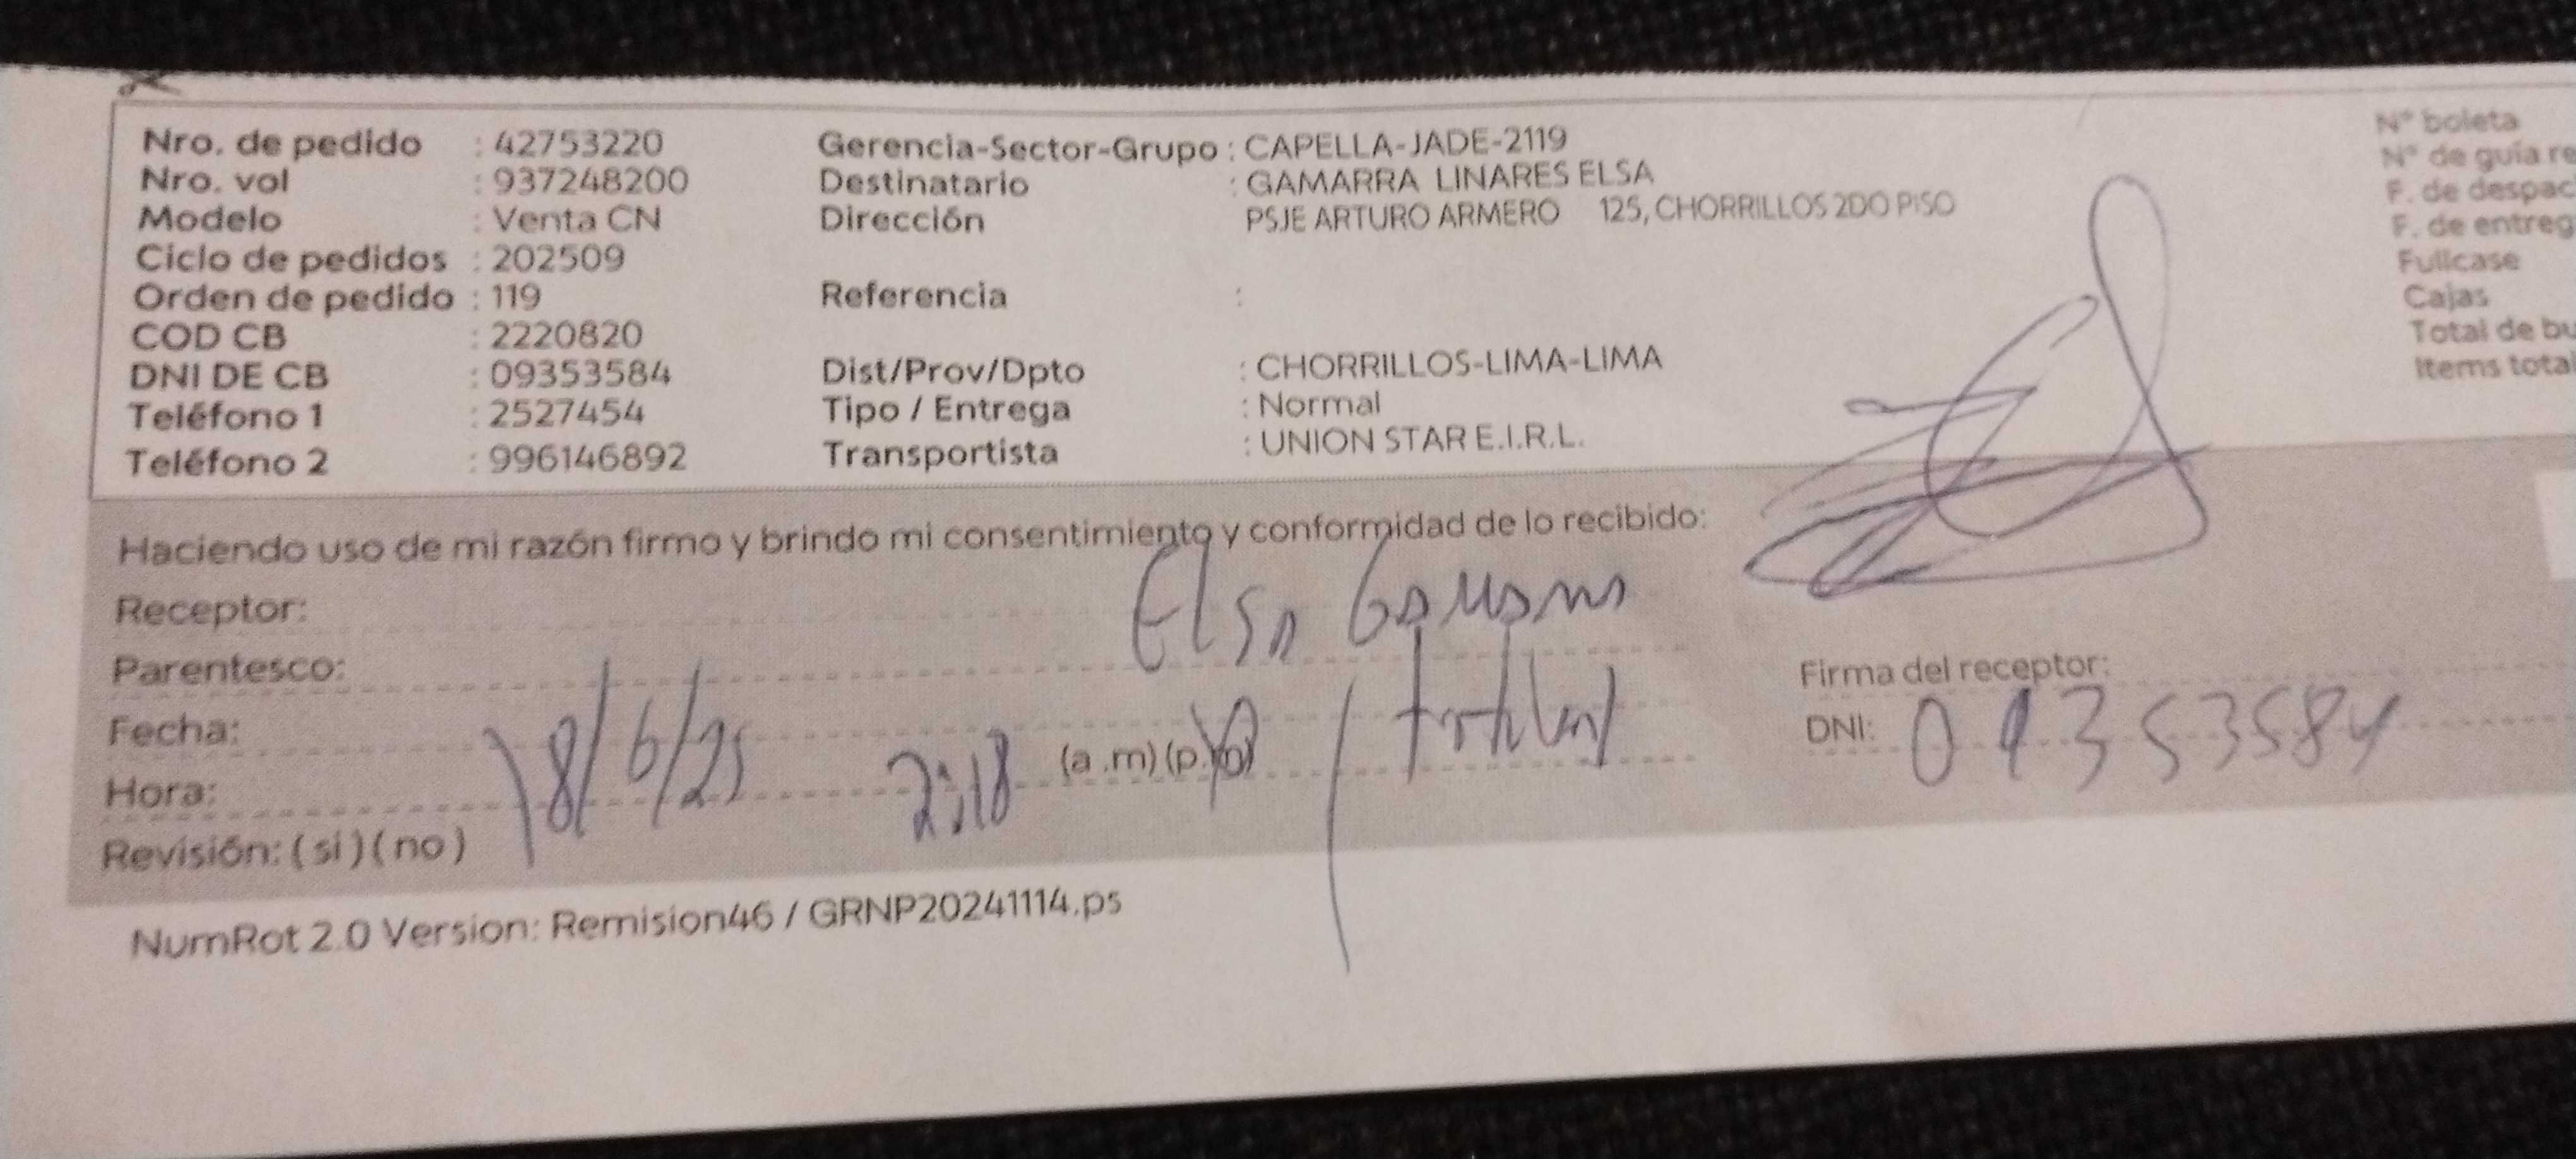 Nro. de pedido : 42753220 Gerencia-Sector-Grupo : CAPELLA-JADE-2119 N° boleta
Nro. vol : 937248200 Destinatario : GAMARRA LINARES ELSA N° de guía re
Modelo : Venta CN Dirección PSJE ARTURO ARMERO 125, CHORRILLOS 2DO PISO F. de despac
Ciclo de pedidos : 202509 F. de entreg
Orden de pedido : 119 Referencia : Fullcase
COD CB : 2220820 Cajas
DNI DE CB : 09353584 Dist/Prov/Dpto : CHORRILLOS-LIMA-LIMA Total de bu
Teléfono 1 : 2527454 Tipo / Entrega : Normal Items total
Teléfono 2 : 996146892 Transportista : UNION STAR E.I.R.L.
Haciendo uso de mi razón firmo y brindo mi consentimiento y conformidad de lo recibido:
Receptor: Elsa Gamarra
Parentesco: Firma del receptor:
Fecha: 18/6/25 DNI: 09353584
Hora: 2:18 (a .m) (p.m) / titular
Revisión: ( si ) ( no )
NumRot 2.0 Version: Remision46 / GRNP20241114.ps